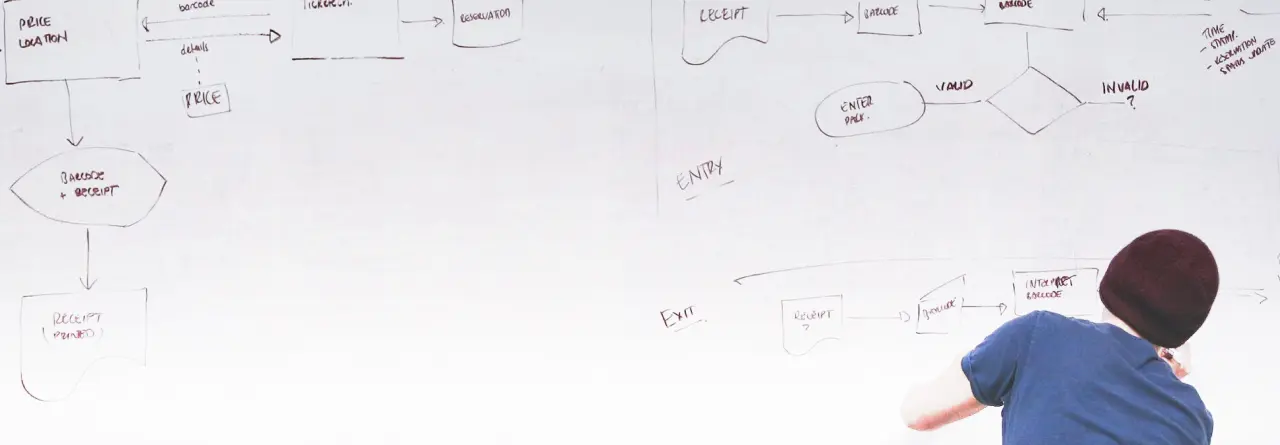 PRICE
LOCATION
barcode
details
PRICE
RESERVATION
BARCODE
+ RECEIPT
RECEIPT
(PRINTED)
RECEIPT
BARCODE
BARCODE
TIME
- STAMP.
- RESERVATION
STATUS UPDATE
VALID
INVALID
?
ENTER
PARK.
ENTRY
EXIT
RECEIPT
?
BARCODE
INTERPRET
BARCODE